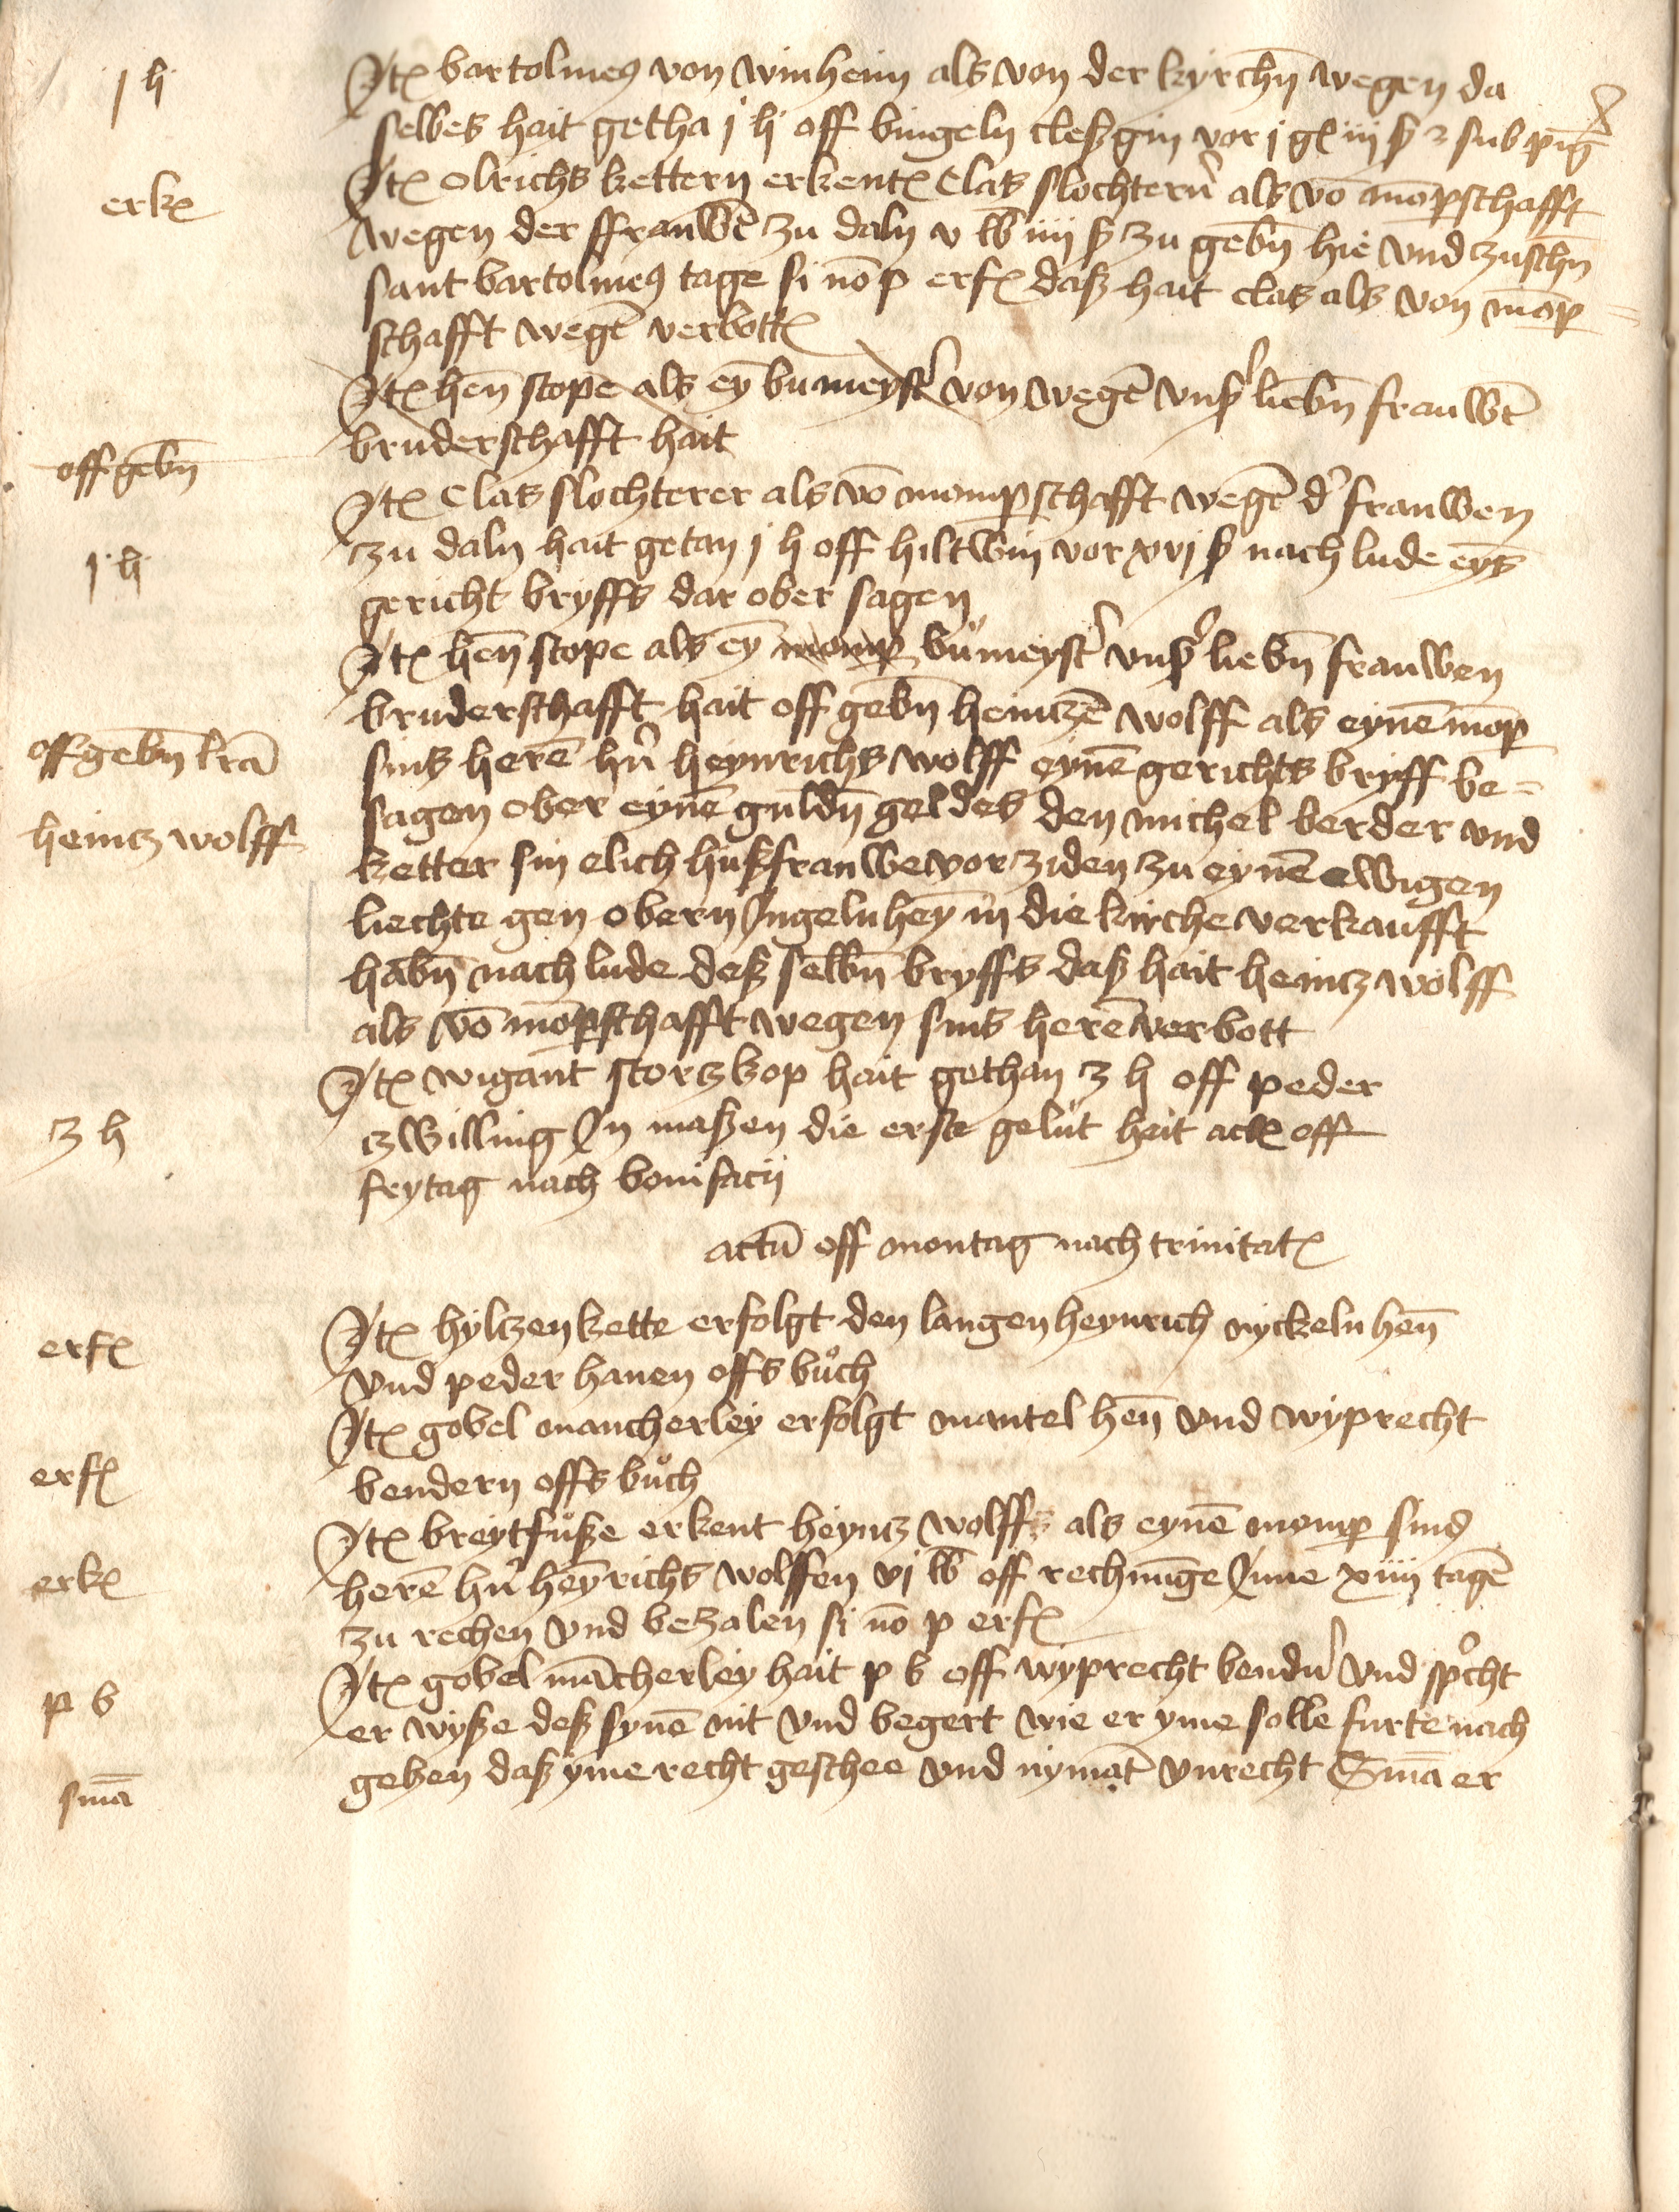 j h
Itꝫ bartolmeꝰ von winheim als von der kyrchn̄ wegen da
selbes hait getha j h off bingeln cleßgin vor j gꝫ iij ß ⁊ sub pīg
erkꝫ
Itꝫ Olrichs kettern erkentꝫ Clas slochtern̉ als vō mōpschafft
wegen der ffrauwē zu daln v lb iiij ß zu gebn̄ hie und zuschn̄
sant bartolmeꝰ tage si nō p erfꝫ daß hait clas als von mōp
schafft wegē verbottꝫ
Itꝫ hen̄ stope als eȳ bumeyst̉ von wegē vnß̉ liebn̄ frauwē
bruderschafft hait
offgebn̄
Itꝫ Clas slochterer als vō mompschafft wegē d̉ frauwen
j h
zu daln hait getan j h off hiltwin vor xvj ß nach lude eyſ
gericht bryffs dar ober sagen
Itꝫ hen̄ stope als eȳ momp bůmeyst̉ vnß̉ liebn̄ frauwen
bruderschafft hait off gebn̄ heintzē wolff als eynē mōp
offgebn̄ lrā
sins herē hn̉ heynrichs wolff eynē gerichts bryff be=
heintz wolff
sagen ober eynē guldn̄ geldes den michel berder und
ketter sin elich hußfrauwe vor ziden zu eynē ewigen
liechte gen obern Ingelnheȳ in die kirche verkaufft
habn̄ nach lude deß selbn̄ bryffs daß hait heintz wolff
als vō mōpschafft wegen sins herē verbott
Itꝫ wigant stortzkop hait gethan 3 h off peder
3 h
zwilling In maßen die erste gelut hait actꝫ off
frytag nach bonifacij
actū off montag nach trinitatꝫ
erfꝫ
Itꝫ hyltzen kette erfolgt den langen heynrich nyckeln hen̄
und peder hanen offs bůch
Itꝫ gobel mancherley erfolgt mantel hen̄ und wyprecht
erfꝫ
bendern offs bůch
Itꝫ breytfůße erkent heyntz wolffs als eynē momp sins
erkꝫ
herē hn̉ heȳrichs wolffen vj lb off rechnūge Inne xiiij tagē
zu rechen und bezalen si nō p erfꝫ
p b
Itꝫ gobel mācherley hait p b off wyprecht bendn̉ und sp̉cht
er wyße deß synē nit und begert wie er yme solle furte nach
smā
geben daß yme recht geschee und nymāt unrecht Smā er